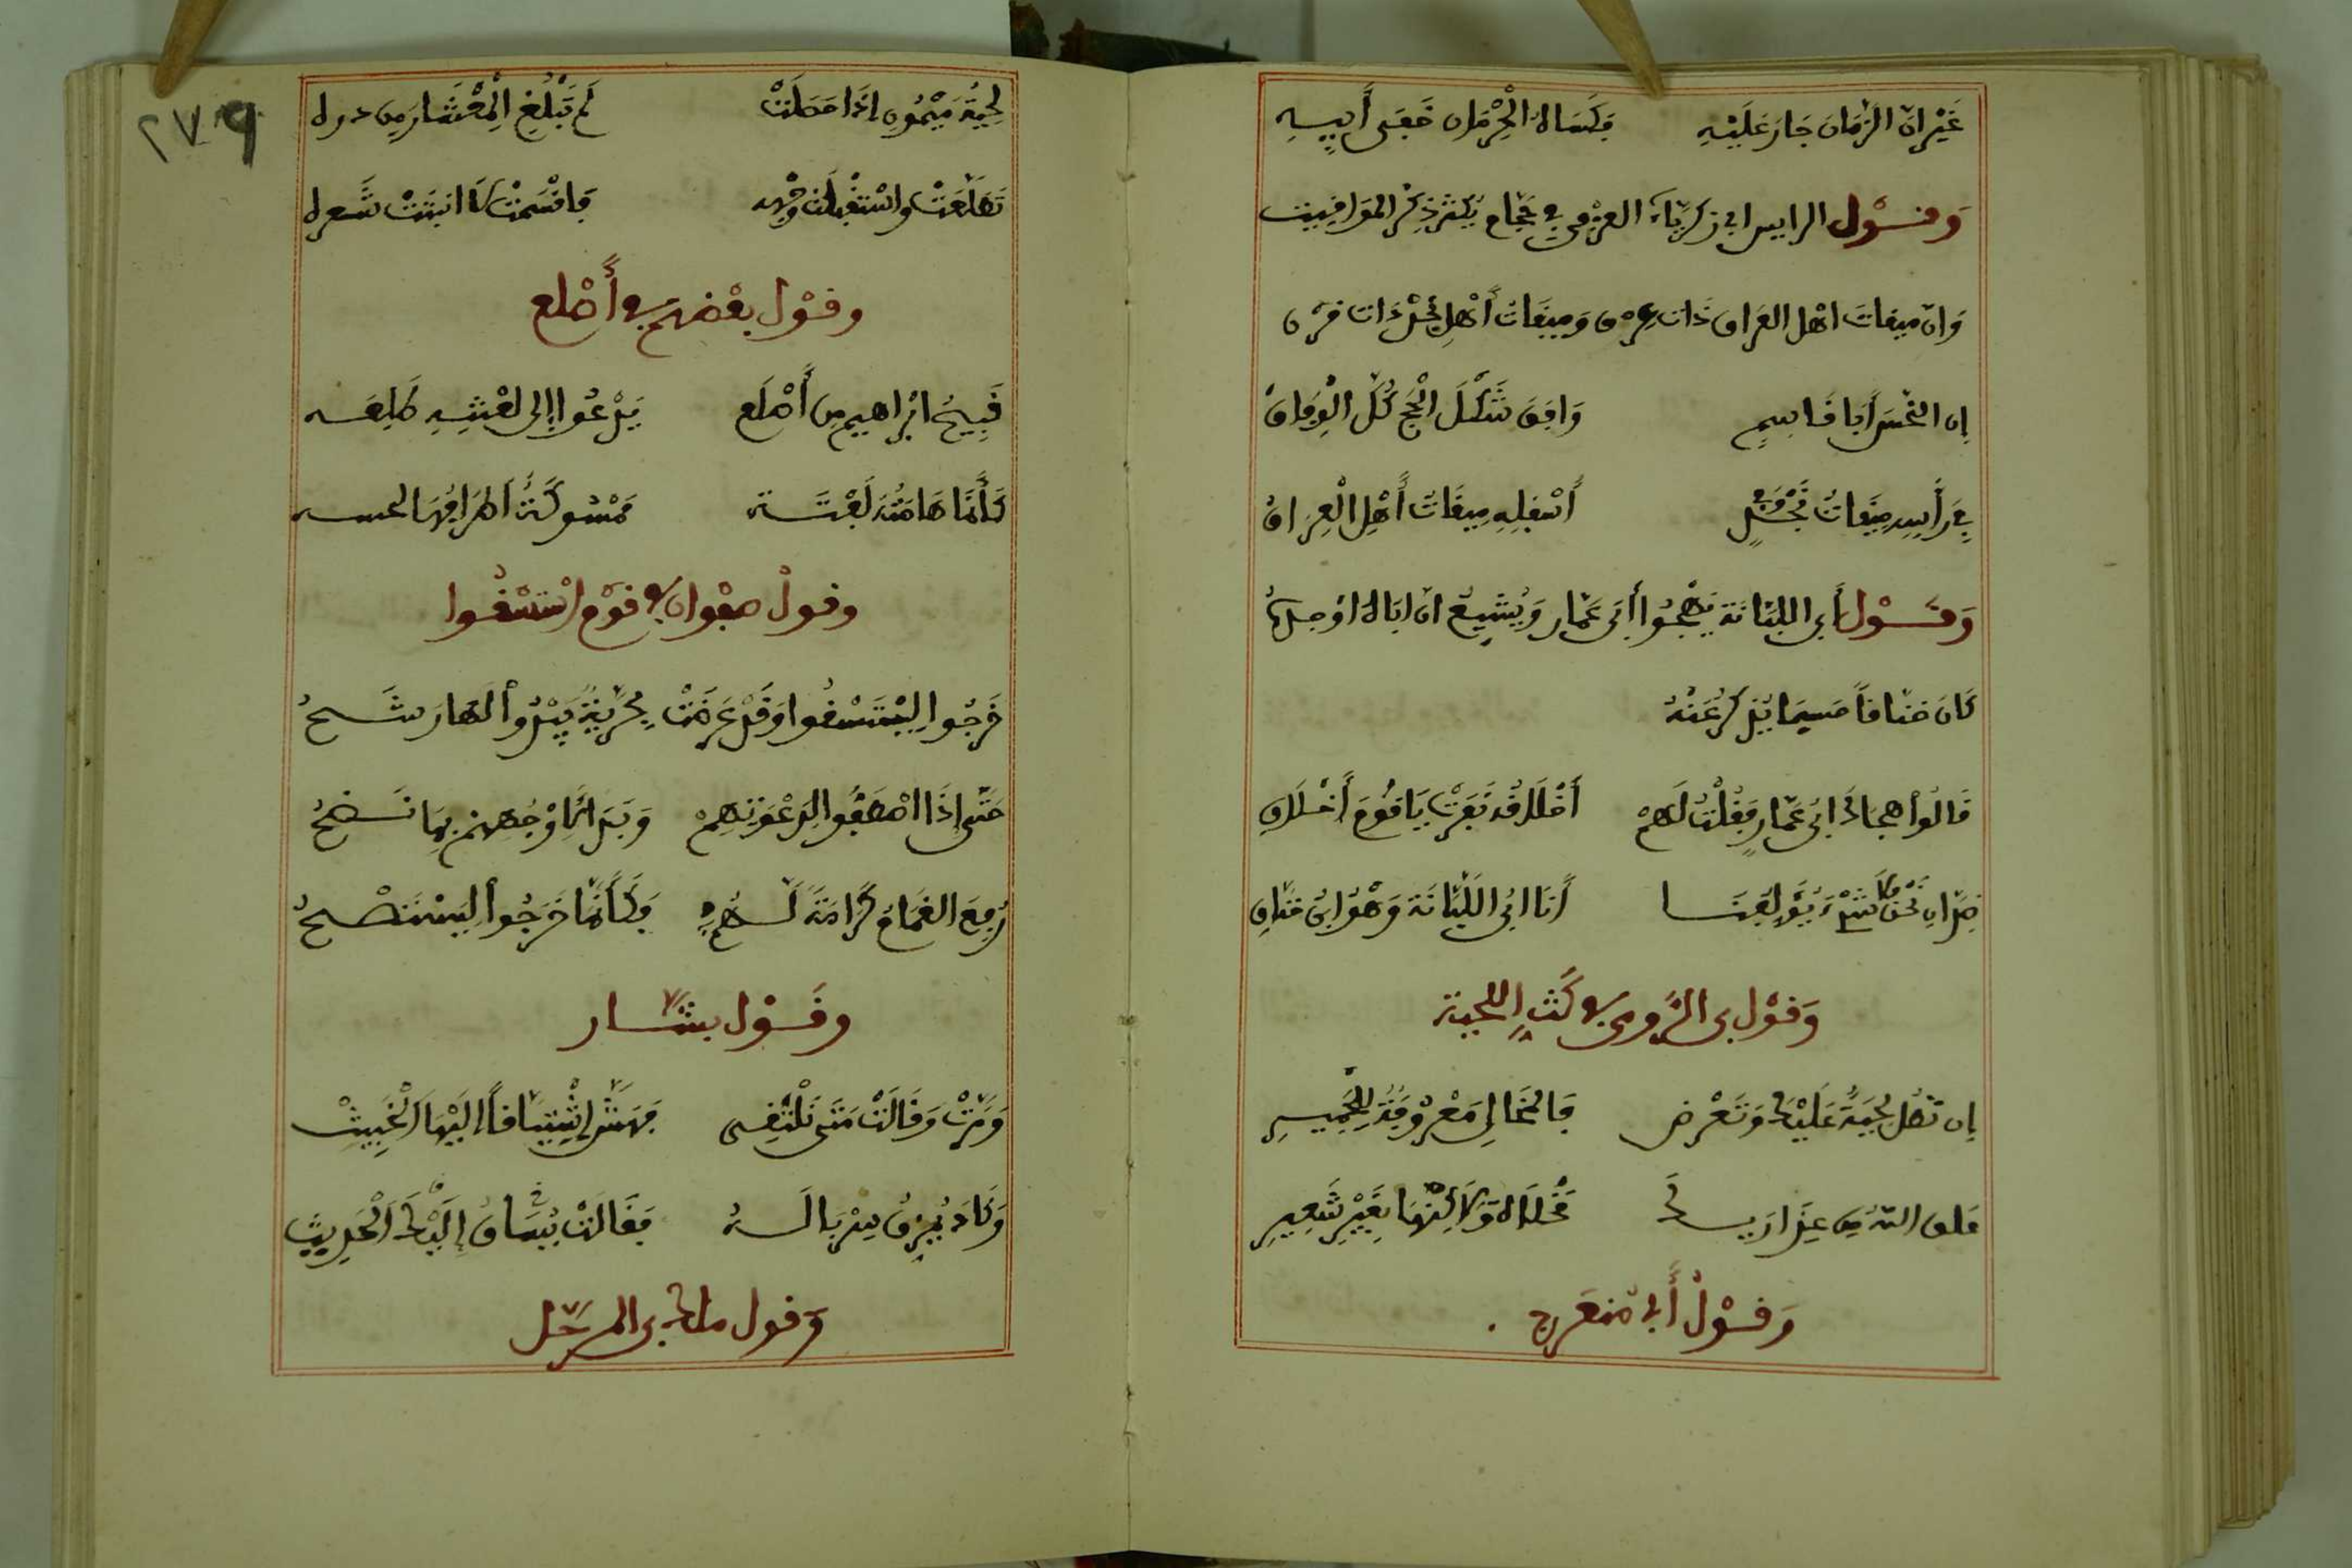 غَيْرَ انّ الزّمَانَ جَارَ عَلَيْهِ فَكَسَاهُ الْحِرْمَان خُفَّىْ أَبِيهِ
وَقَوْل الرايس ابى زكرياء العزفى فى حجام يكثر ذكر المواقيت
وَانّ ميقاتَ اهْل العراق ذات عِرْق وَمِيقَات أَهْلِ نجْد ذات قرْن
إن النّحْسَ أَبَا قَاسِمٍ وَافَقَ شَكْلَ الْحَجِّ كُلَّ الْوِفَاقْ
فِي رَأْسِهِ مِيقَاتُ نَجْدٍ وَفِي أَسْفَلِهِ مِيقَاتُ أَهْلِ الْعِرَاقْ
وَقَوْل أبى اللبَّانَة يَهْجُوا ابْنَ عَمّار وَيُشِيعُ انّ ابَاهُ اوْ جدّهُ
كَانَ خنّاقاً حسبما يُذكرُ عَنْهُ
قَالُوا هجاكَ ابْن عَمّارٍ فَقُلْتُ لَهُمْ أَخْلَاقُهُ نَفَرَتْ يَا قَوْمِ أَخْلَاقِى
ضِدّانِ نَحْنُ فَلَا شَىْءٌ يُؤَلِّفُنَا أَنَا ابْنُ اللَّبَّانَة وَهْوَ ابْن خنّاقِ
وَقَوْل بن الرُّومى فى كَثِّ اللحية
إن تَطُلْ لِحْيَةٌ عَلَيْكَ وَتَعْرض فَالْمَخَالِى مَعْرُوفَةٌ لِلْحَمِيرِ
علق اللّه فى عِذَاريكَ مِخْلَاةً وَلَاكِنَّهَا بِغَيْرِ شَعِيرِ
وَقَوْلُ أَبِى
لِحْيَةُ مَيْمُونٍ إذَا حَصَلَتْ لَمْ تَبْلُغِ الْمِعْشَارَ مِن ذره
تَطَلَّعَتْ وَاسْتَقْبَلَتْ وَجْهه فَاقْسَمَتْ لَا انبتَتْ شَعره
وقَوْل بعْضهم فى أَصْلع
قَبِيحُ ابْراهيم مِن أَصْلَع يَدْعُوا إلى لعْنَتِهِ طَلْعَتــه
كَأَنَّمَا هَامَتُهُ لَفْتَــة مَمْسُوكَةُ اَطْرَافُهَا لحســه
وقولُ صفْوان فى قوْم اسْتَسْقُوا
خَرَجُوا لِيَسْتَسْقُوا وَقَدْ عَرَضَتْ بَحْرِيّةٌ يَبْدُوا لَهَا رَشْــحُ
حَتّى إِذَا اصْطَفُّوا لِدَعْوَتِهِمْ وَبَدَا لِأَوْجُههم بِهَا نَضْــحُ
رُفِعَ الغَمَامُ كَرَامَةً لَــهُمُ فَكَأَنَّمَا خَرَجُوا لِيَسْتَصْــحُوا
وقَــوْل بشّــار
وَمَرّتْ وَقَالَتْ مَتَى نَلْتَقِى فَهَشَّ اِشْتِيَاقاً الَيْهَا الْخَبِيثْ
وَكَادَ يُمَزِّقُ سِرْبَالَــهُ فَقَالَتْ يُسَاقُ إلَيْكَ الْحَدِيثْ
وقول مالك بن المرحّل
٢٧٩